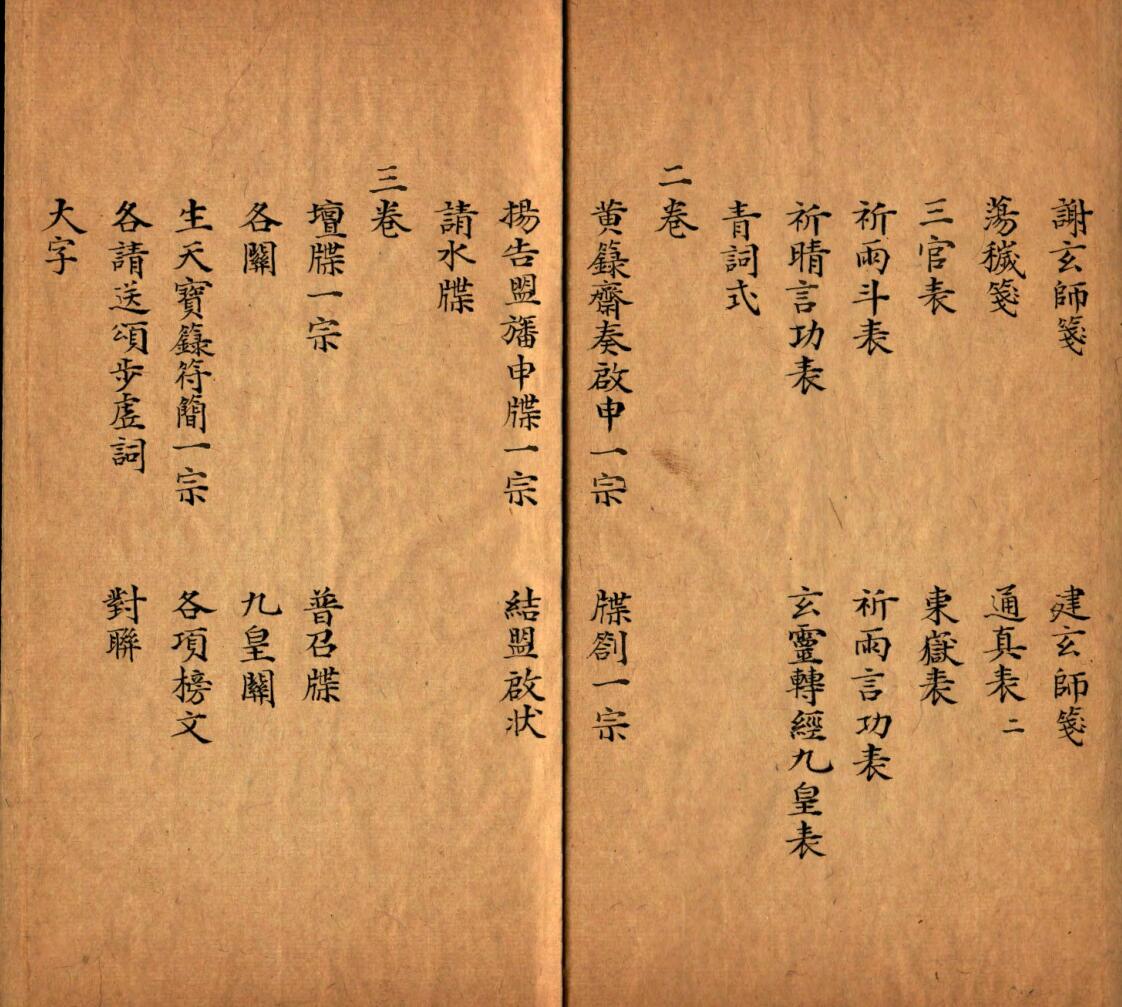 謝玄師箋　建玄師箋
蕩穢箋　通真表二
三官表　東嶽表
祈雨斗表　祈雨言功表
祈晴言功表　玄靈轉經九皇表
青詞式
二卷
黄籙齋奏啟申一宗　牒劄一宗
揚告盟旛申牒一宗　結盟啟状
請水牒
三卷
壇牒一宗　普召牒
各關　九皇關
生天寶籙符簡一宗　各項榜文
各請送頌步虛詞　對聯
大字